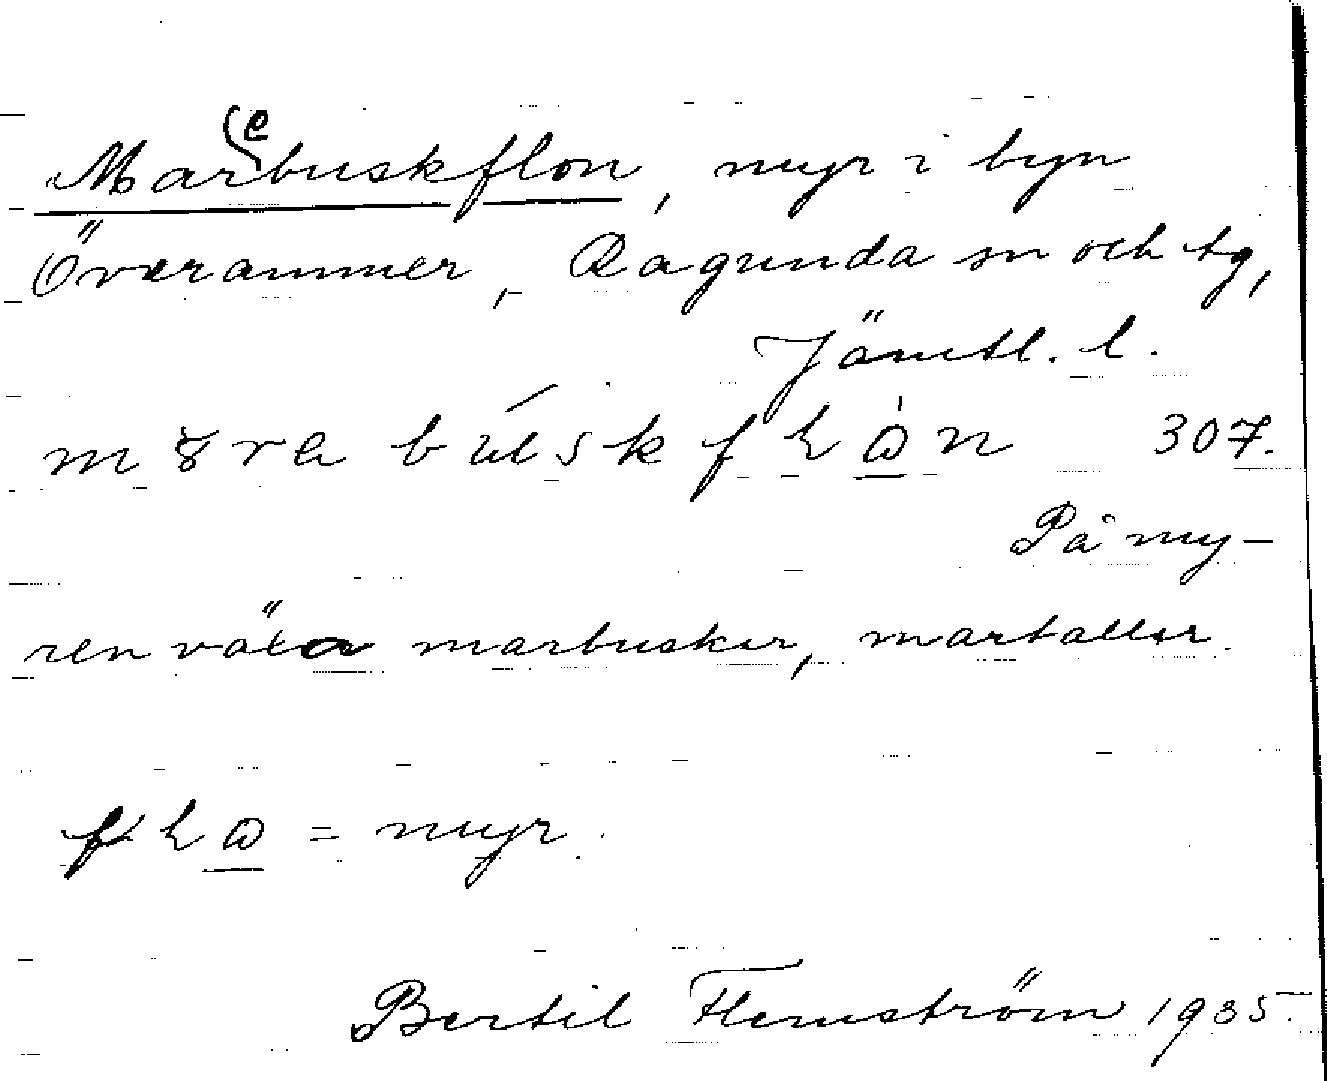 Mar(ebuskflon, myr i byn
Överammer, Ragunda sn och tg,
Jämtl. l.
307.
På my-
ren växa marbuskar, martallar.
= myr.
Bertil Flemström 1935.